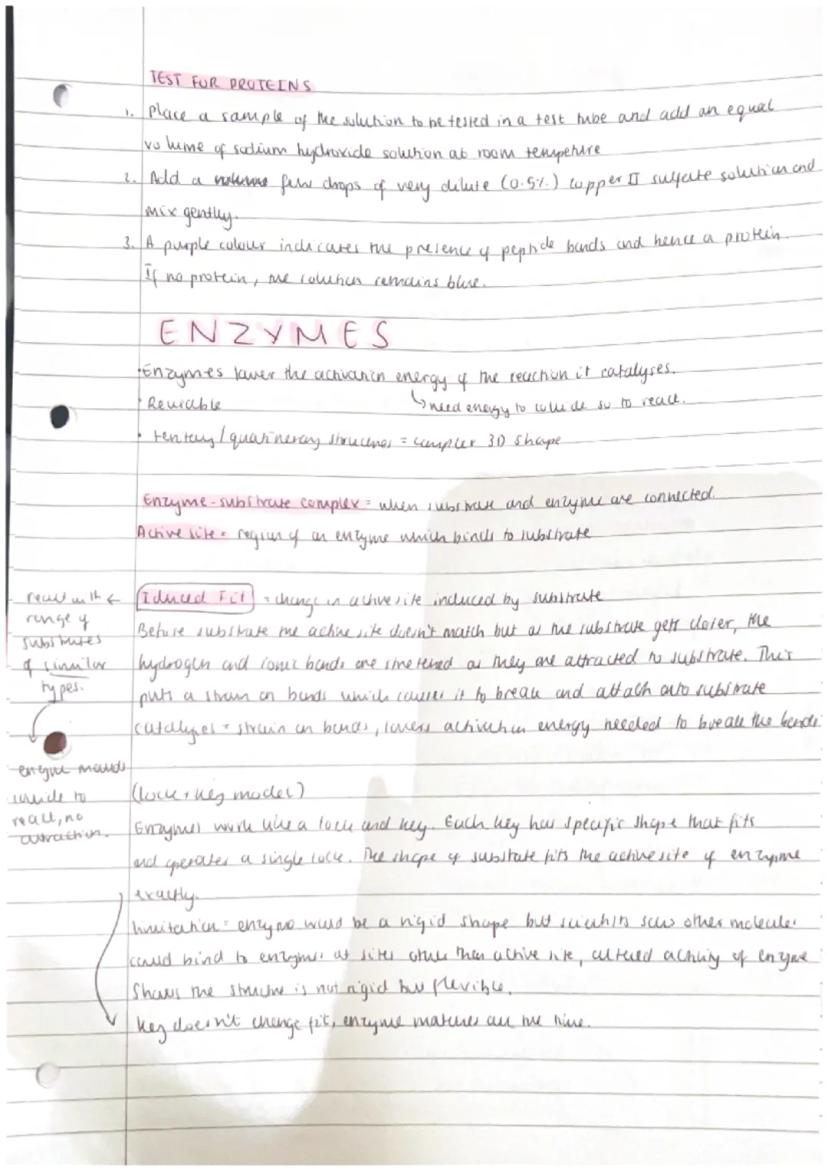 TEST FOR PROTEINS
1. Place a sample of the solution to be tested in a test tube and add an equal
volume of sodium hydroxide solution at room tempeture
2. Add a few drops of very dilute (0.5%) copper II sulfate solution and
mix gently.
3. A purple colour indicates the presence of peptide bonds and hence a protein.
If no protein, the solution remains blue.
ENZYMES
· Enzymes lower the activation energy of the reaction it catalyses.
↳ need energy to collide so to react.
· Reusable
· tertiary/quaternary structures = complex 3D shape
Enzyme-substrate complex = when substrate and enzyme are connected.
Active site = region of an enzyme which binds to substrate
react with ←
range of
substrates
of similar
types.
enzyme
collide to
react, no
attraction.
Iduced Fit = change in active site induced by substrate
Before substrate the active site doesn't match but as the substrate gets closer, the
hydrogen and ionic bonds are stretched as they are attracted to substrate. This
puts a strain on bonds which causes it to break and attach onto substrate
catalyses = strain on bonds, lowers activation energy needed to break the bonds
(lock + key model)
Enzymes work like a lock and key. Each key has specific shape that fits
and operates a single lock. The shape of substrate fits the active site of enzyme
exactly.
limitation = enzyme would be a rigid shape but scientists saw other molecules
could bind to enzymes at sites other than active site, altered activity of enzyme
Shows the structure is not rigid but flexible.
Key doesn't change fit, enzyme matches all the time.